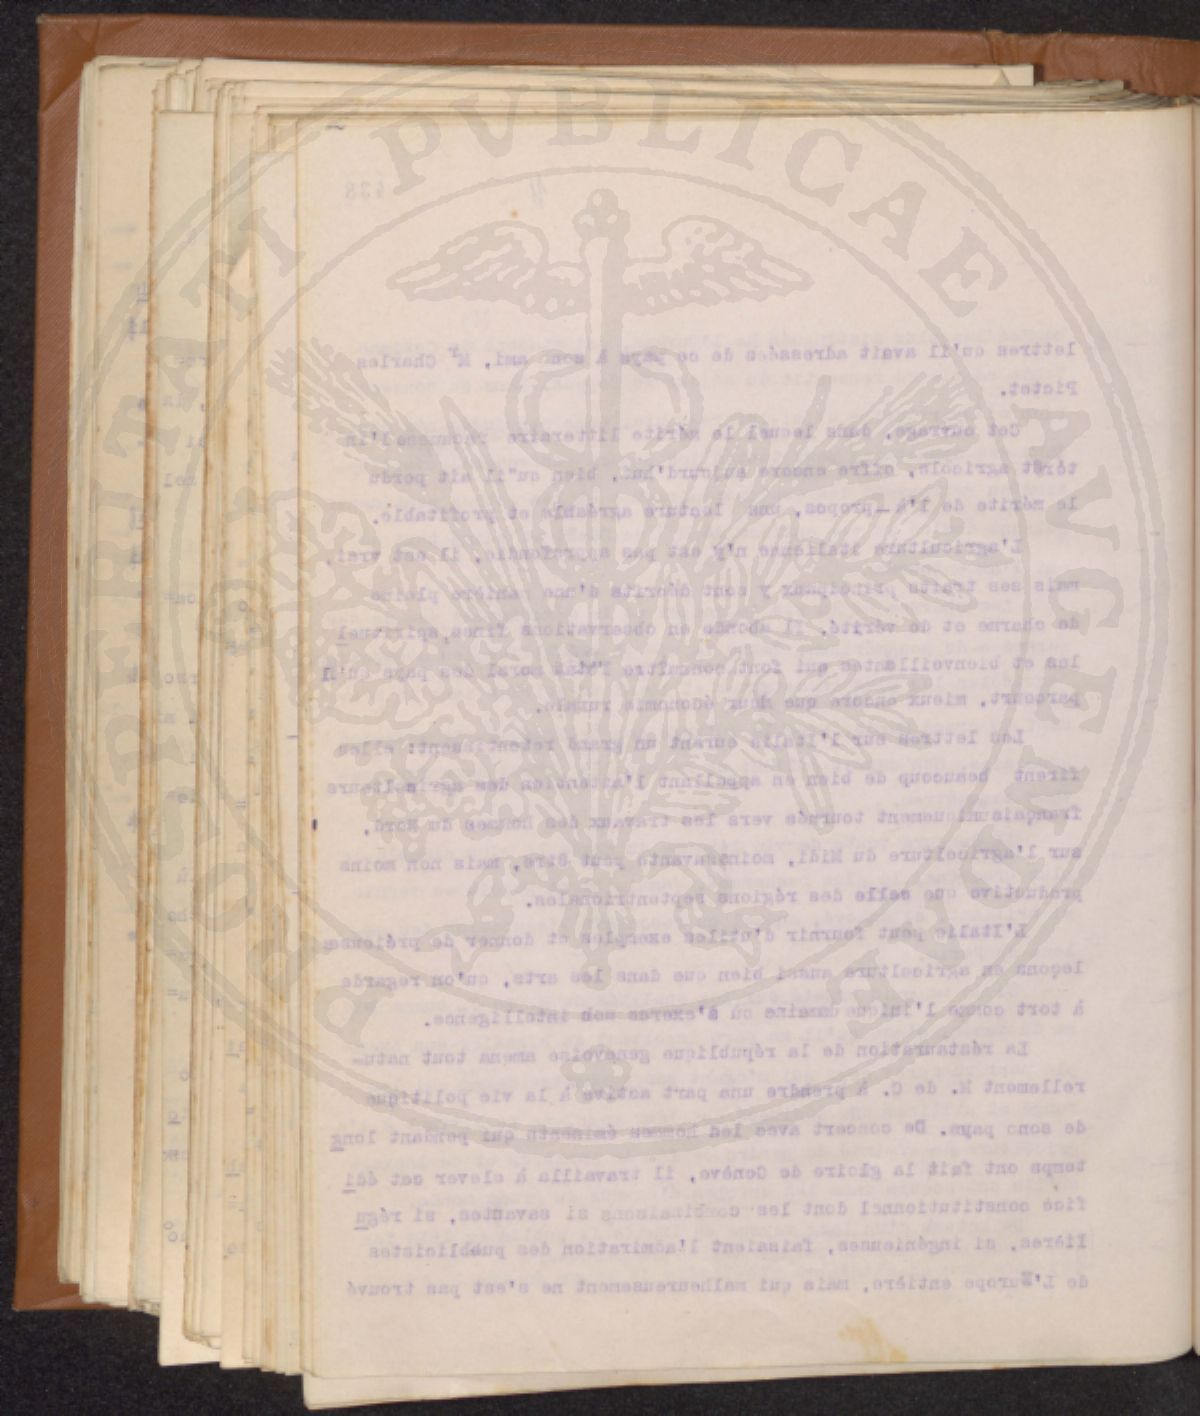 428
lettres qu'il avait adressées de ce pays à sonc ami, Mr Charles
Pictet.
Cet ouvrage, dans lequel le mérite litteraire l'in
térêt agricole, offre encore aujourd'hui, bien qu"il ait perdu
le mérite de l'à-propos, une lecture agréable et profitable.
L'agriculture italienne n'y est pas approfondie, il est vrai,
mais ses traits principaux y sont décrits d'une manière pleine
de charme et de vérité. Il abonde en observations fines, spirituel
les et bienveillantes qui font connaître l'état moral des pays qu'il
parcourt, mieux encore que leur économie rurale.
Les lettres sur l'Italie eurent un grand retentissement: elles
firent beaucoup de bien en appellant l'attention des agriculteurs
français tournée vers les travaux des hommes du Nord,
sur l'agriculture du Midi, moins savante peut être, mais non moins
productive que celle des régions septentrionales.
L'Italie peut fournir d'utiles exemples et donner de
leçons en agriculture aussi bien que dans les arts, qu'on regarde
à tort comme l'unique domaine où s'exerce son intelligence.
La réstauration de la république genevoise amena tout natu-
rellement M. de C. à prendre une part active à la vie politique
de sono pays. De concert avec les hommes éminents qui pendant long
temps ont fait la gloire de Genève, il travailla à elever cet édi
fice constitutionnel dont les combinaisons si savantes, si régu
lières, si ingénieuses, faisaient l'admiration des publicistes
de L'Europe entière, mais qui malheureusement ne s'est pas trouvé
PROSPERITATI PVBLICAE AVGENDAE